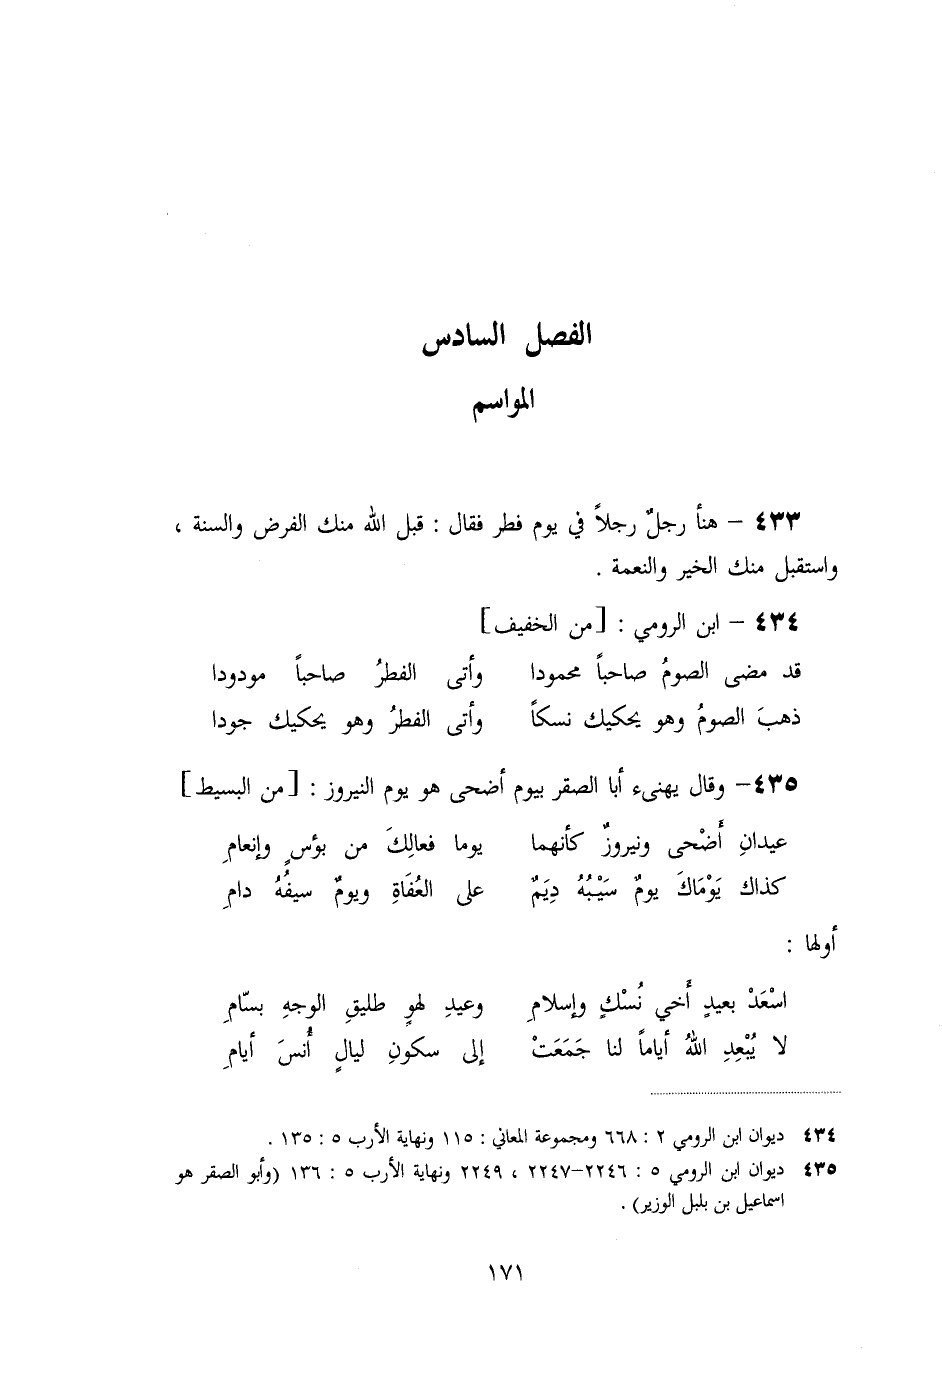 الفصل السادس
المواسم
٤٣٣ – هنأ رجلٌ رجلاً في يوم فطر فقال : قبل الله منك الفرض والسنة ،
واستقبل منك الخير والنعمة .
٤٣٤ – ابن الرومي : [من الخفيف]
قد مضى الصومُ صاحباً محمودا وأتى الفطرُ صاحباً مودودا
ذهبَ الصومُ وهو يحكيك نسكاً وأتى الفطرُ وهو يحكيك جودا
٤٣٥– وقال يهنىء أبا الصقر بيوم أضحى هو يوم النيروز : [من البسيط]
عيدانِ أَضْحى ونيروزٌ كأنهما يوما فعالِكَ من بؤسٍ وإنعامِ
كذاك يَوْمَاكَ يومٌ سَيْبُهُ دِيَمٌ على العُفَاةِ ويومٌ سيفُهُ دامِ
أولها :
اسْعَدْ بعيدٍ أَخي نُسْكٍ وإسلامِ وعيدِ لهوٍ طليقِ الوجهِ بسّامِ
لا يُبْعِدِ اللهُ أياماً لنا جَمَعَتْ إلى سكونِ ليالٍ أُنسَ أيامِ
٤٣٤ ديوان ابن الرومي ٢ : ٦٦٨ ومجموعة المعاني : ١١٥ ونهاية الأرب ٥ : ١٣٥ .
٤٣٥ ديوان ابن الرومي ٥ : ٢٢٤٦–٢٢٤٧ ، ٢٢٤٩ ونهاية الأرب ٥ : ١٣٦ (وأبو الصقر هو
اسماعيل بن بلبل الوزير) .
١٧١